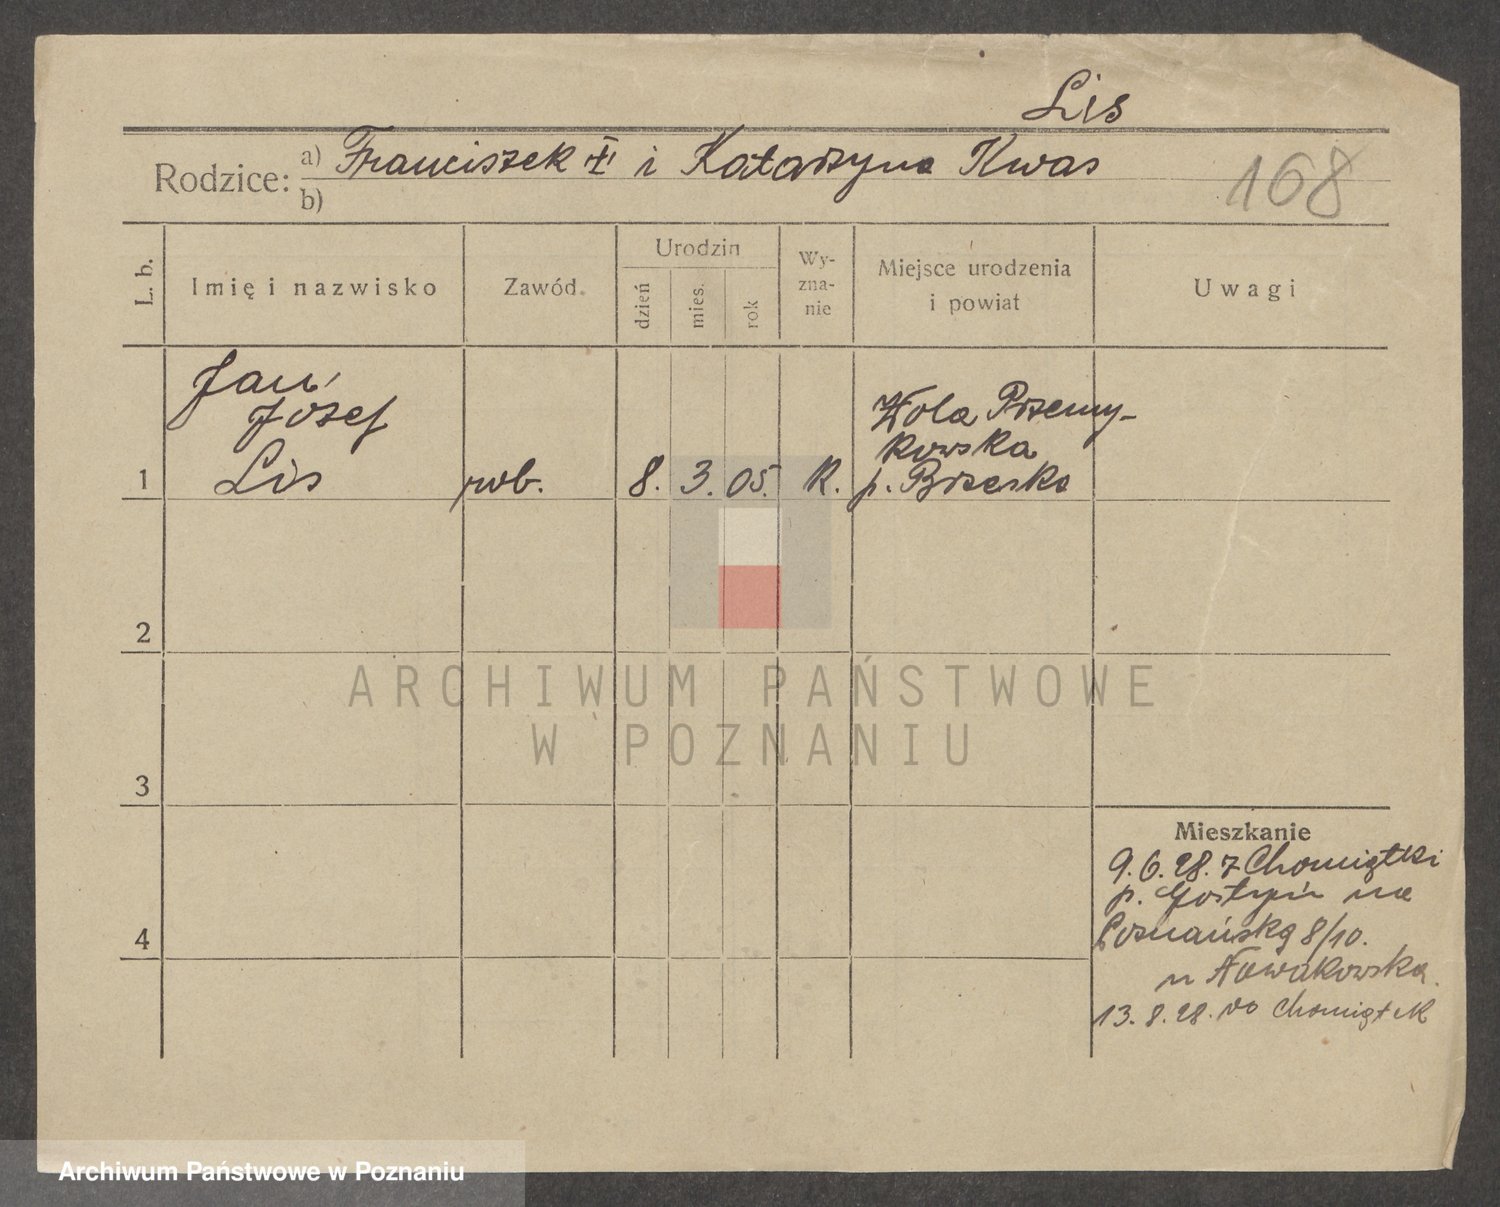 Lis
Rodzice: a) Franciszek i Katarzyna Kwas
b)
168
L. b.
Imię i nazwisko
Zawód.
Urodzin
dzień
mies.
rok
Wy-
zna-
nie
Miejsce urodzenia
i powiat
Uwagi
Jan,
Józef
Lis
1
rob.
8. 3. 05.
K.
Wola Przemy-
kowska
p. Brzesko
2
3
4
Mieszkanie
9.6.28. z Chomiątki
p. Gostyń na
Poznańską 8/10.
u Nowakowska.
13.8.28. do Chomiątek
ARCHIWUM PAŃSTWOWE
W POZNANIU
Archiwum Państwowe w Poznaniu